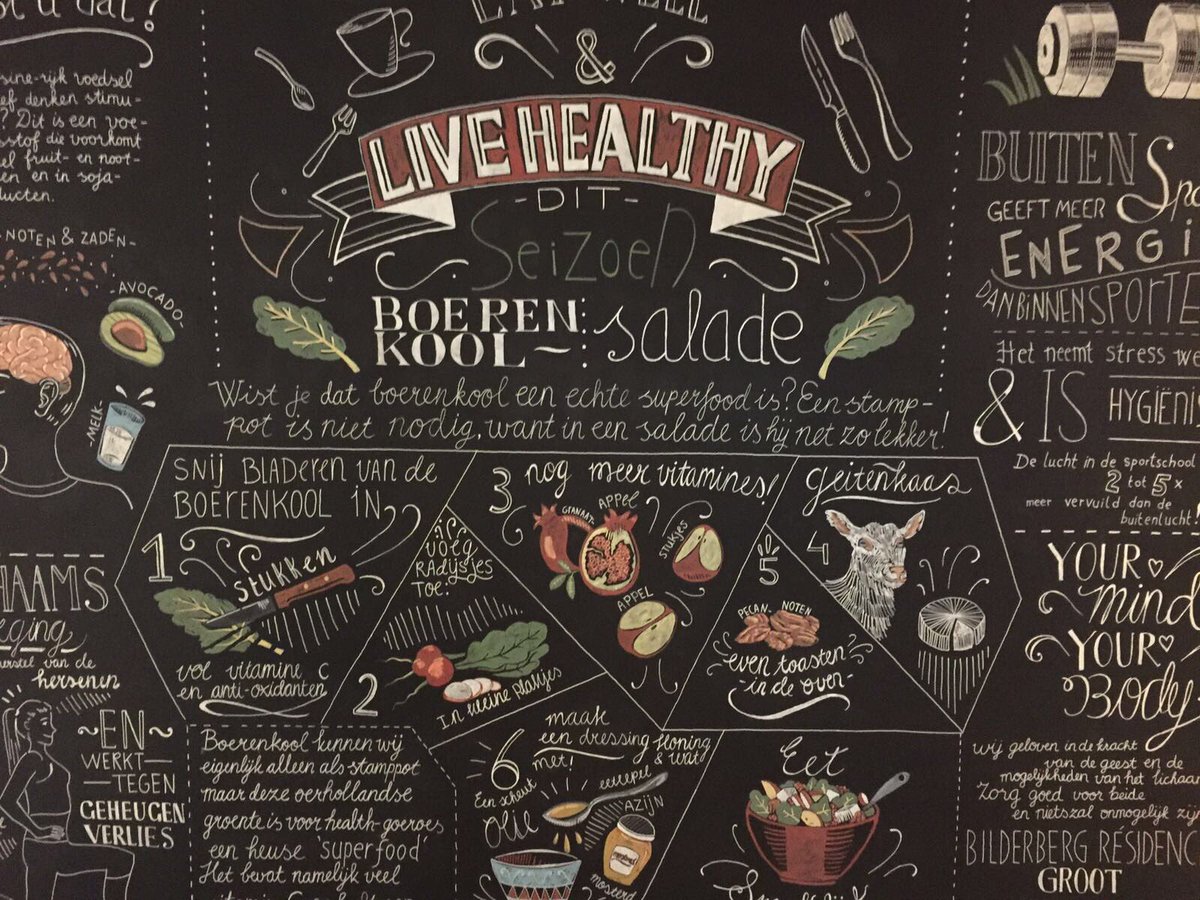 u dat?
sine-rijk voedsel
ef denken stimu-
? Dit is een voe-
stof die voorkomt
el fruit- en noot-
en en in soja-
ucten.
NOTEN & ZADEN-
AVOCADO-
MELK
HAAMS
eging
erstel van de
hersenen
~EN~
WERKT
TEGEN
GEHEUGEN
VERLIES
&
LIVE HEALTHY
-DIT-
SEIZOEN
BOEREN
KOOL~
salade
Wist je dat boerenkool een echte superfood is? Een stamp-
pot is niet nodig, want in een salade is hij net zo lekker!
1
SNIJ BLADEREN VAN DE
BOERENKOOL IN
stukken
vol vitamine C
en anti-oxidanten
2
voeg
RADIJSJES
TOE.
In kleine plakjes
3 nog meer vitamines!
GRANAAT-
APPEL
stukjes
APPEL
4
geitenkaas
5
PECAN NOTEN
even toasten
-in de oven-
6
maak
een dressing
met!
Honing
& wat
Een scheut
OLIE
eetlepel
AZIJN
mosterd
Eet
Boerenkool kunnen wij
eigenlijk alleen als stamppot
maar deze oerhollandse
groente is voor health-goeroes
een heuse 'superfood'
Het bevat namelijk veel
BUITEN Spo
GEEFT MEER
ENERGI
DAN BINNEN SPORTE
Het neemt stress we
& IS
HYGIËNI
De lucht in de sportschool
2 tot 5x
meer vervuild dan de
buitenlucht!
YOUR
mind
YOUR
Body
Wij geloven in de kracht
van de geest en de
mogelijkheden van het lichaa
Zorg goed voor beide
en niets zal onmogelijk zij
BILDERBERG RÉSIDENC
GROOT